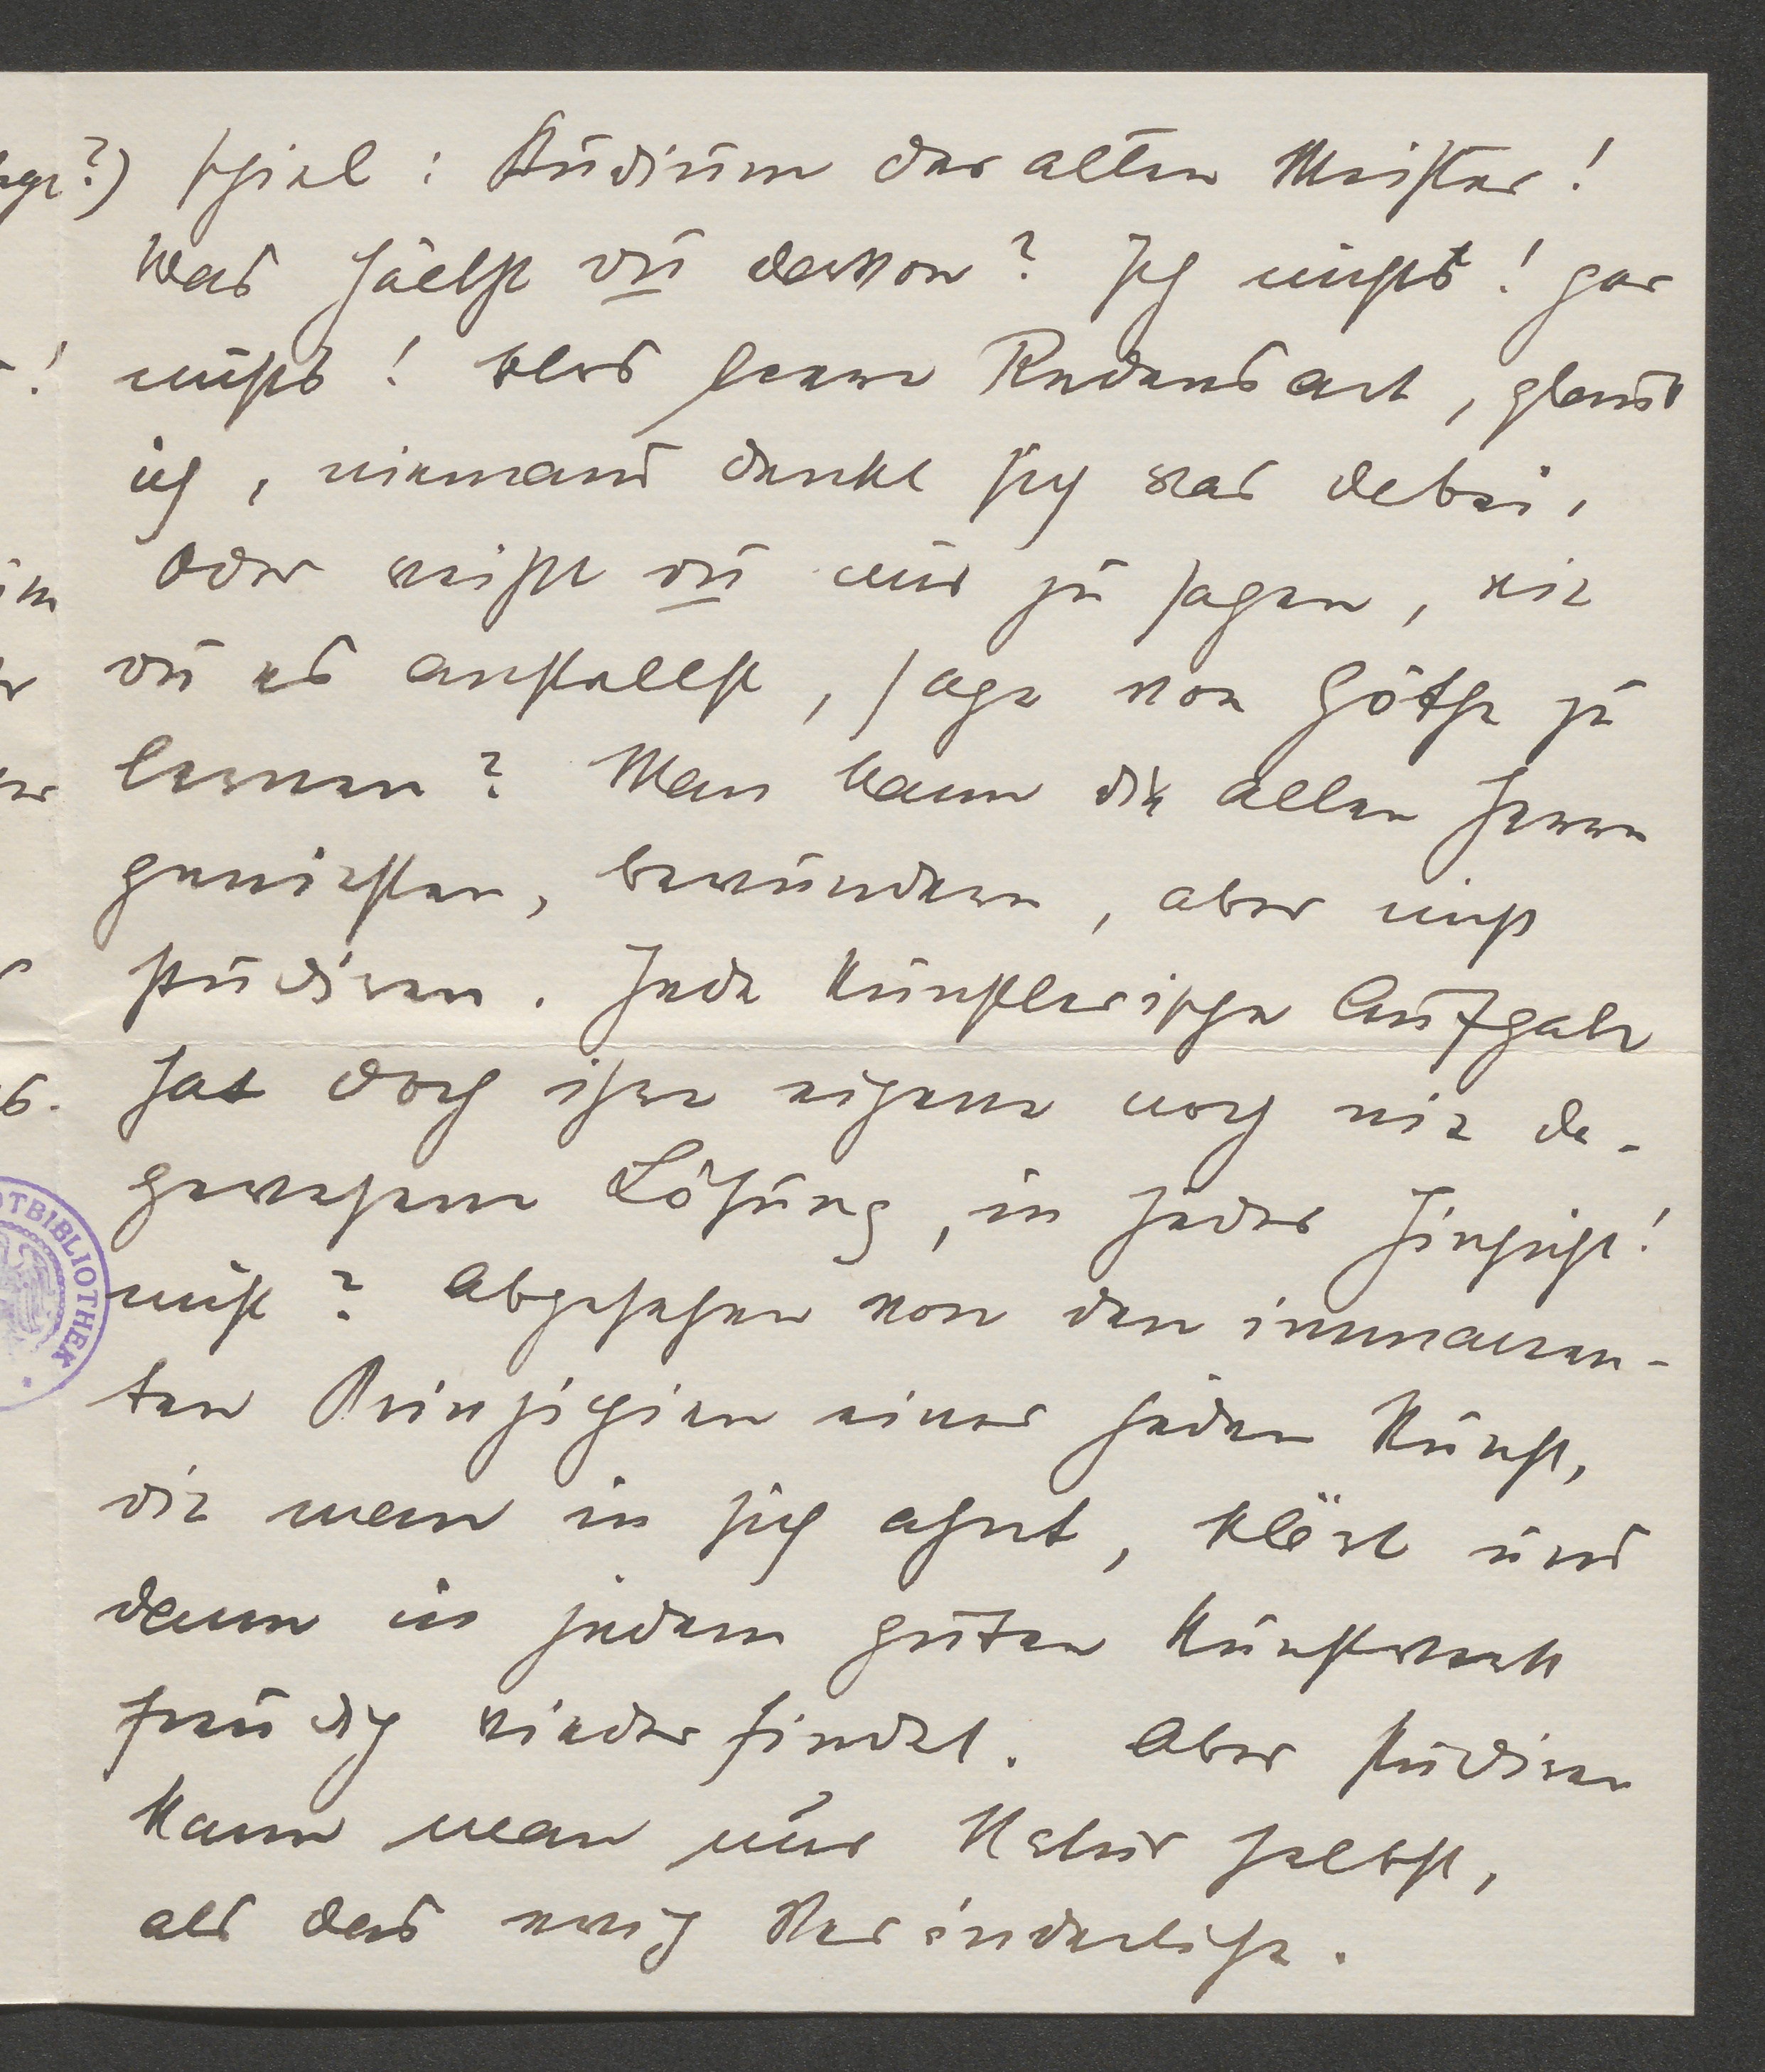 spiel: Studium der alten Meister!
Was hältst du davon? Ich nichts! gar
nichts! Blos leere Redensart, glaub
ich, niemand denkt sich was dabei,
Oder weißt du mir zu sagen, wie
du es anstellst, sage von Göthe zu
lernen? Man kann die alten Herrn
genießen, bewundern, aber nicht
studiren. Jede künstlerische Aufgabe
hat doch ihre eigene noch nie da-
gewesene Lösung, in jeder Hinsicht!
nicht? Abgesehen von den immanen-
ten Prinzipien einer jeden Kunst,
die man in sich ahnt, klärt und
dann in jedem guten Kunstwerk
freudig wiederfindet. Aber studiren
kann man nur Natur selbst,
als das ewig Veränderliche.
BIBLIOTHEK